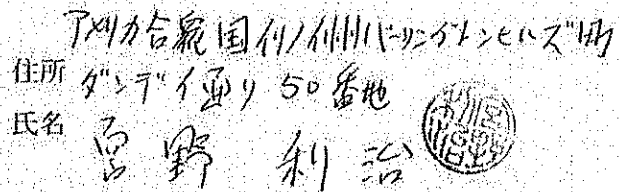 アメリカ合衆国イリノイ州バーリングトンヒルズ町
住所 ダンデイ通り50番地
氏名 宮野 利治